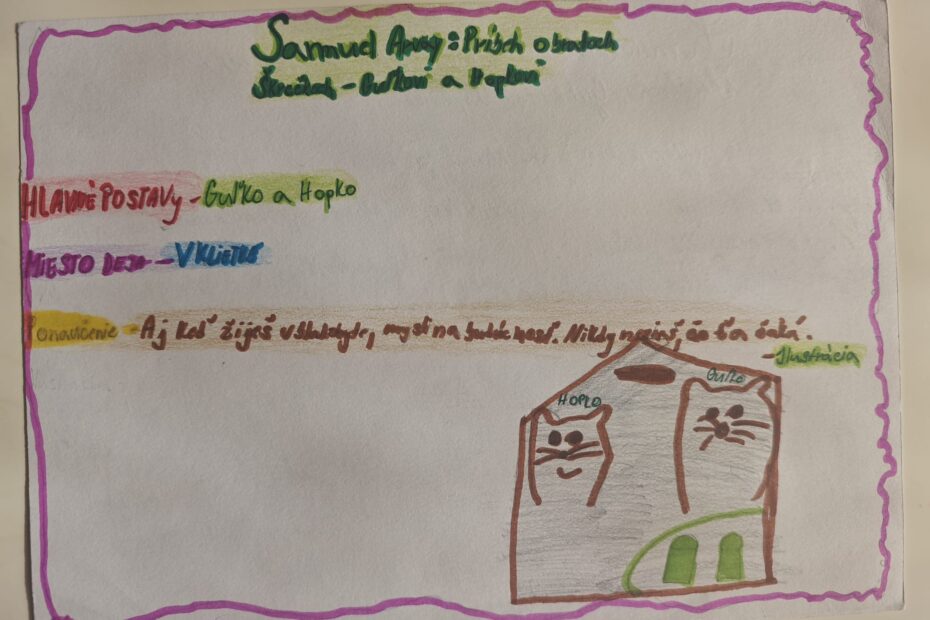 Samuel : Príbeh o bratoch
Škrečkoch - Guľkovi a Hopkovi
HLAVNÉ POSTAVY - Guľko a Hopko
MIESTO DEJA - V KLIETKE
Ponaučenie - Aj keď žiješ v blahobyte, mysli na budúcnosť. Nikdy nevieš, čo ťa čaká.
- Ilustrácia
Guľko
HOPKO